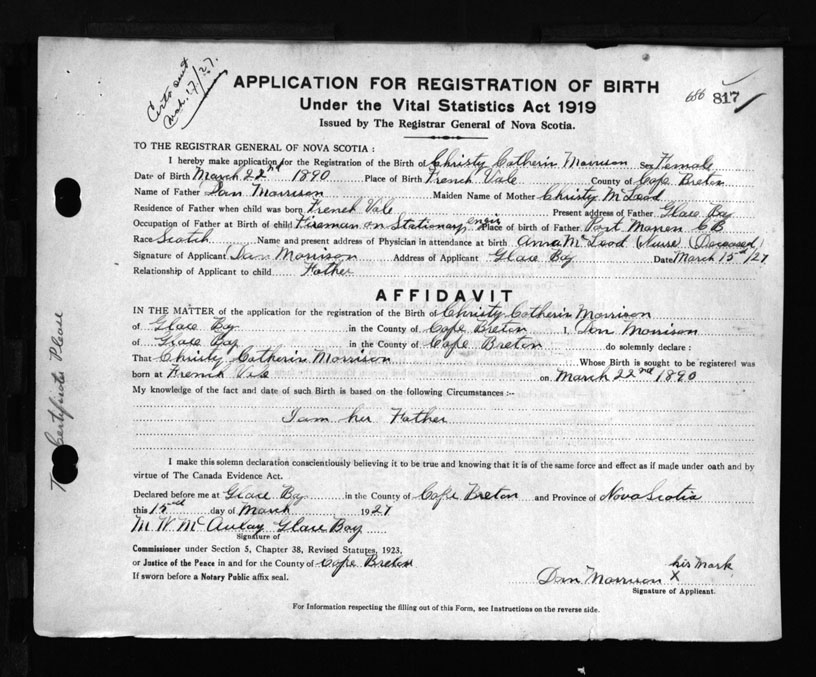 Certs sent
Mch. 17/27.
APPLICATION FOR REGISTRATION OF BIRTH
686 817
Under the Vital Statistics Act 1919
Issued by The Registrar General of Nova Scotia.
TO THE REGISTRAR GENERAL OF NOVA SCOTIA :
I hereby make application for the Registration of the Birth of Christy Catherin Morrison Sex Female
Date of Birth March 22nd 1890 Place of Birth French Vale County of Cape Breton
Name of Father Dan Morrison Maiden Name of Mother Christy McLeod
Residence of Father when child was born French Vale Present address of Father Glace Bay
Occupation of Father at Birth of child Fireman on Stationary engin Place of birth of Father Port Morien C B
Race Scotch Name and present address of Physician in attendance at birth Anna McLeod (Nurse) (Deceased)
Signature of Applicant Dan Morrison Address of Applicant Glace Bay Date March 15th/27
Relationship of Applicant to child Father
AFFIDAVIT
IN THE MATTER of the application for the registration of the Birth of Christy Catherin Morrison
of Glace Bay in the County of Cape Breton I, Dan Morrison
of Glace Bay in the County of Cape Breton do solemnly declare :
That Christy Catherin Morrison Whose Birth is sought to be registered was
born at French Vale on March 22nd 1890
My knowledge of the fact and date of such Birth is based on the following Circumstances :--
I am her Father
I make this solemn declaration conscientiously believing it to be true and knowing that it is of the same force and effect as if made under oath and by
virtue of The Canada Evidence Act.
Declared before me at Glace Bay in the County of Cape Breton and Province of Nova Scotia
this 15th day of March 1927
M. W. McAulay Glace Bay
Signature of
Commissioner under Section 5, Chapter 38, Revised Statutes, 1923.
or Justice of the Peace in and for the County of Cape Breton
If sworn before a Notary Public affix seal.
his Mark
Dan Morrison X
Signature of Applicant.
For Information respecting the filling out of this Form, see Instructions on the reverse side.
Certificates Please